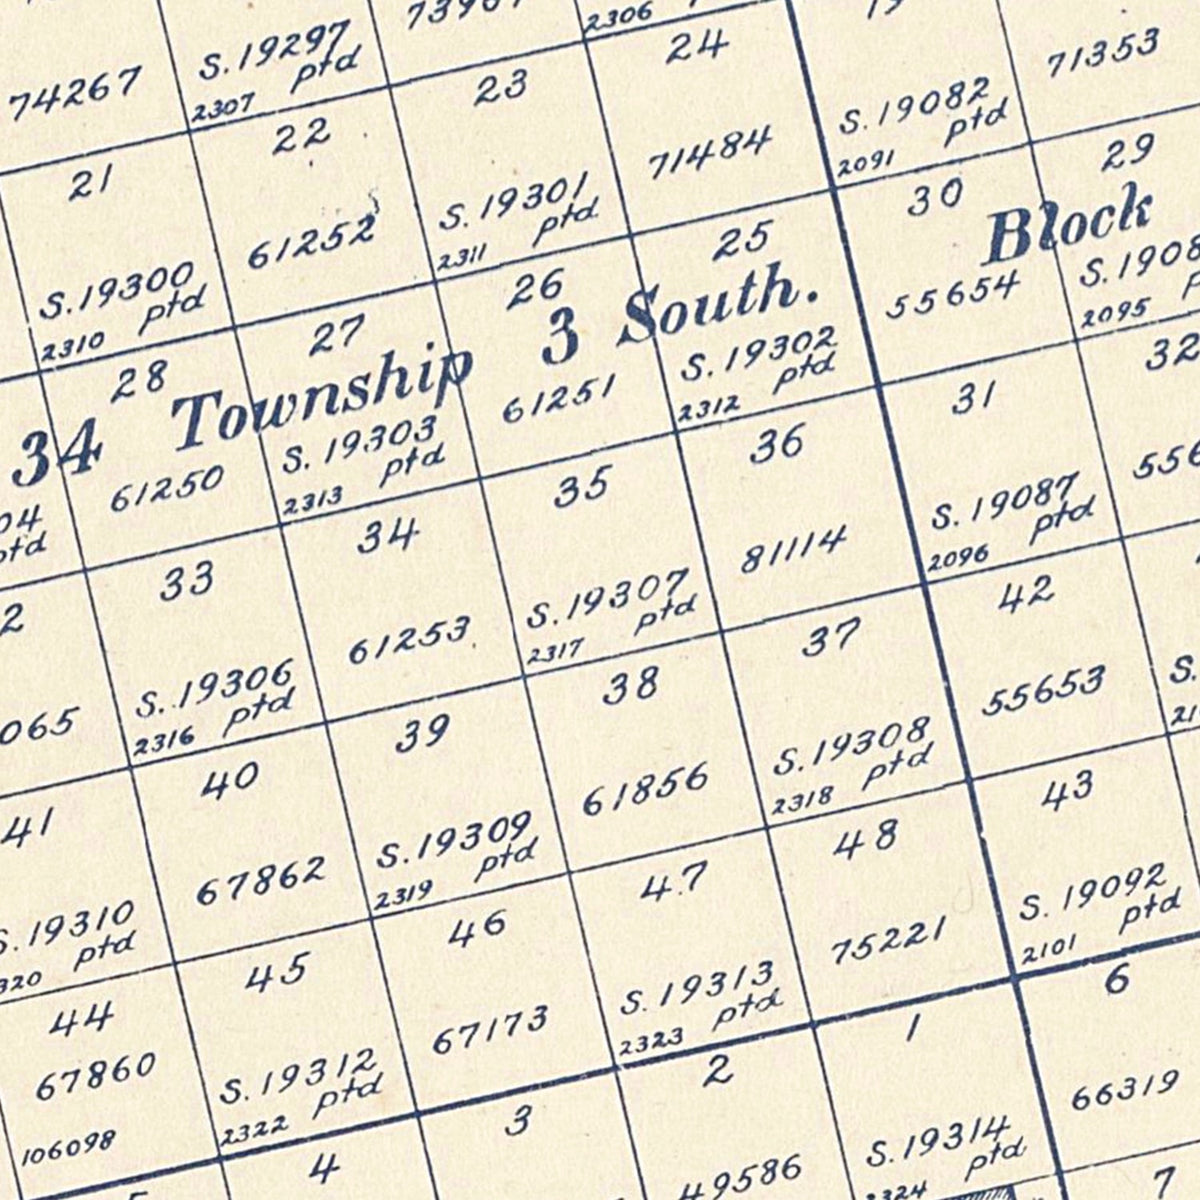 74267
S. 19297
ptd
2307
2306
24
71484
S. 19082
ptd
2091
71353
21
S. 19300
ptd
2310
22
61252
23
S. 19301
ptd
2311
25
S. 19302
ptd
2312
30
55654
29
Block
2095
34 Township 3 South.
28
61250
27
S. 19303
ptd
2313
26
61251
36
81114
31
S. 19087
ptd
2096
32
33
S. 19306
ptd
2316
34
61253
35
S. 19307
ptd
2317
37
S. 19308
ptd
2318
42
55653
41
S. 19310
ptd
40
67862
39
S. 19309
ptd
2319
38
61856
48
75221
43
S. 19092
ptd
2101
44
67860
106098
45
S. 19312
ptd
2322
46
67173
47
S. 19313
ptd
2323
1
S. 19314
ptd
2324
6
66319
4
3
2
49586
7